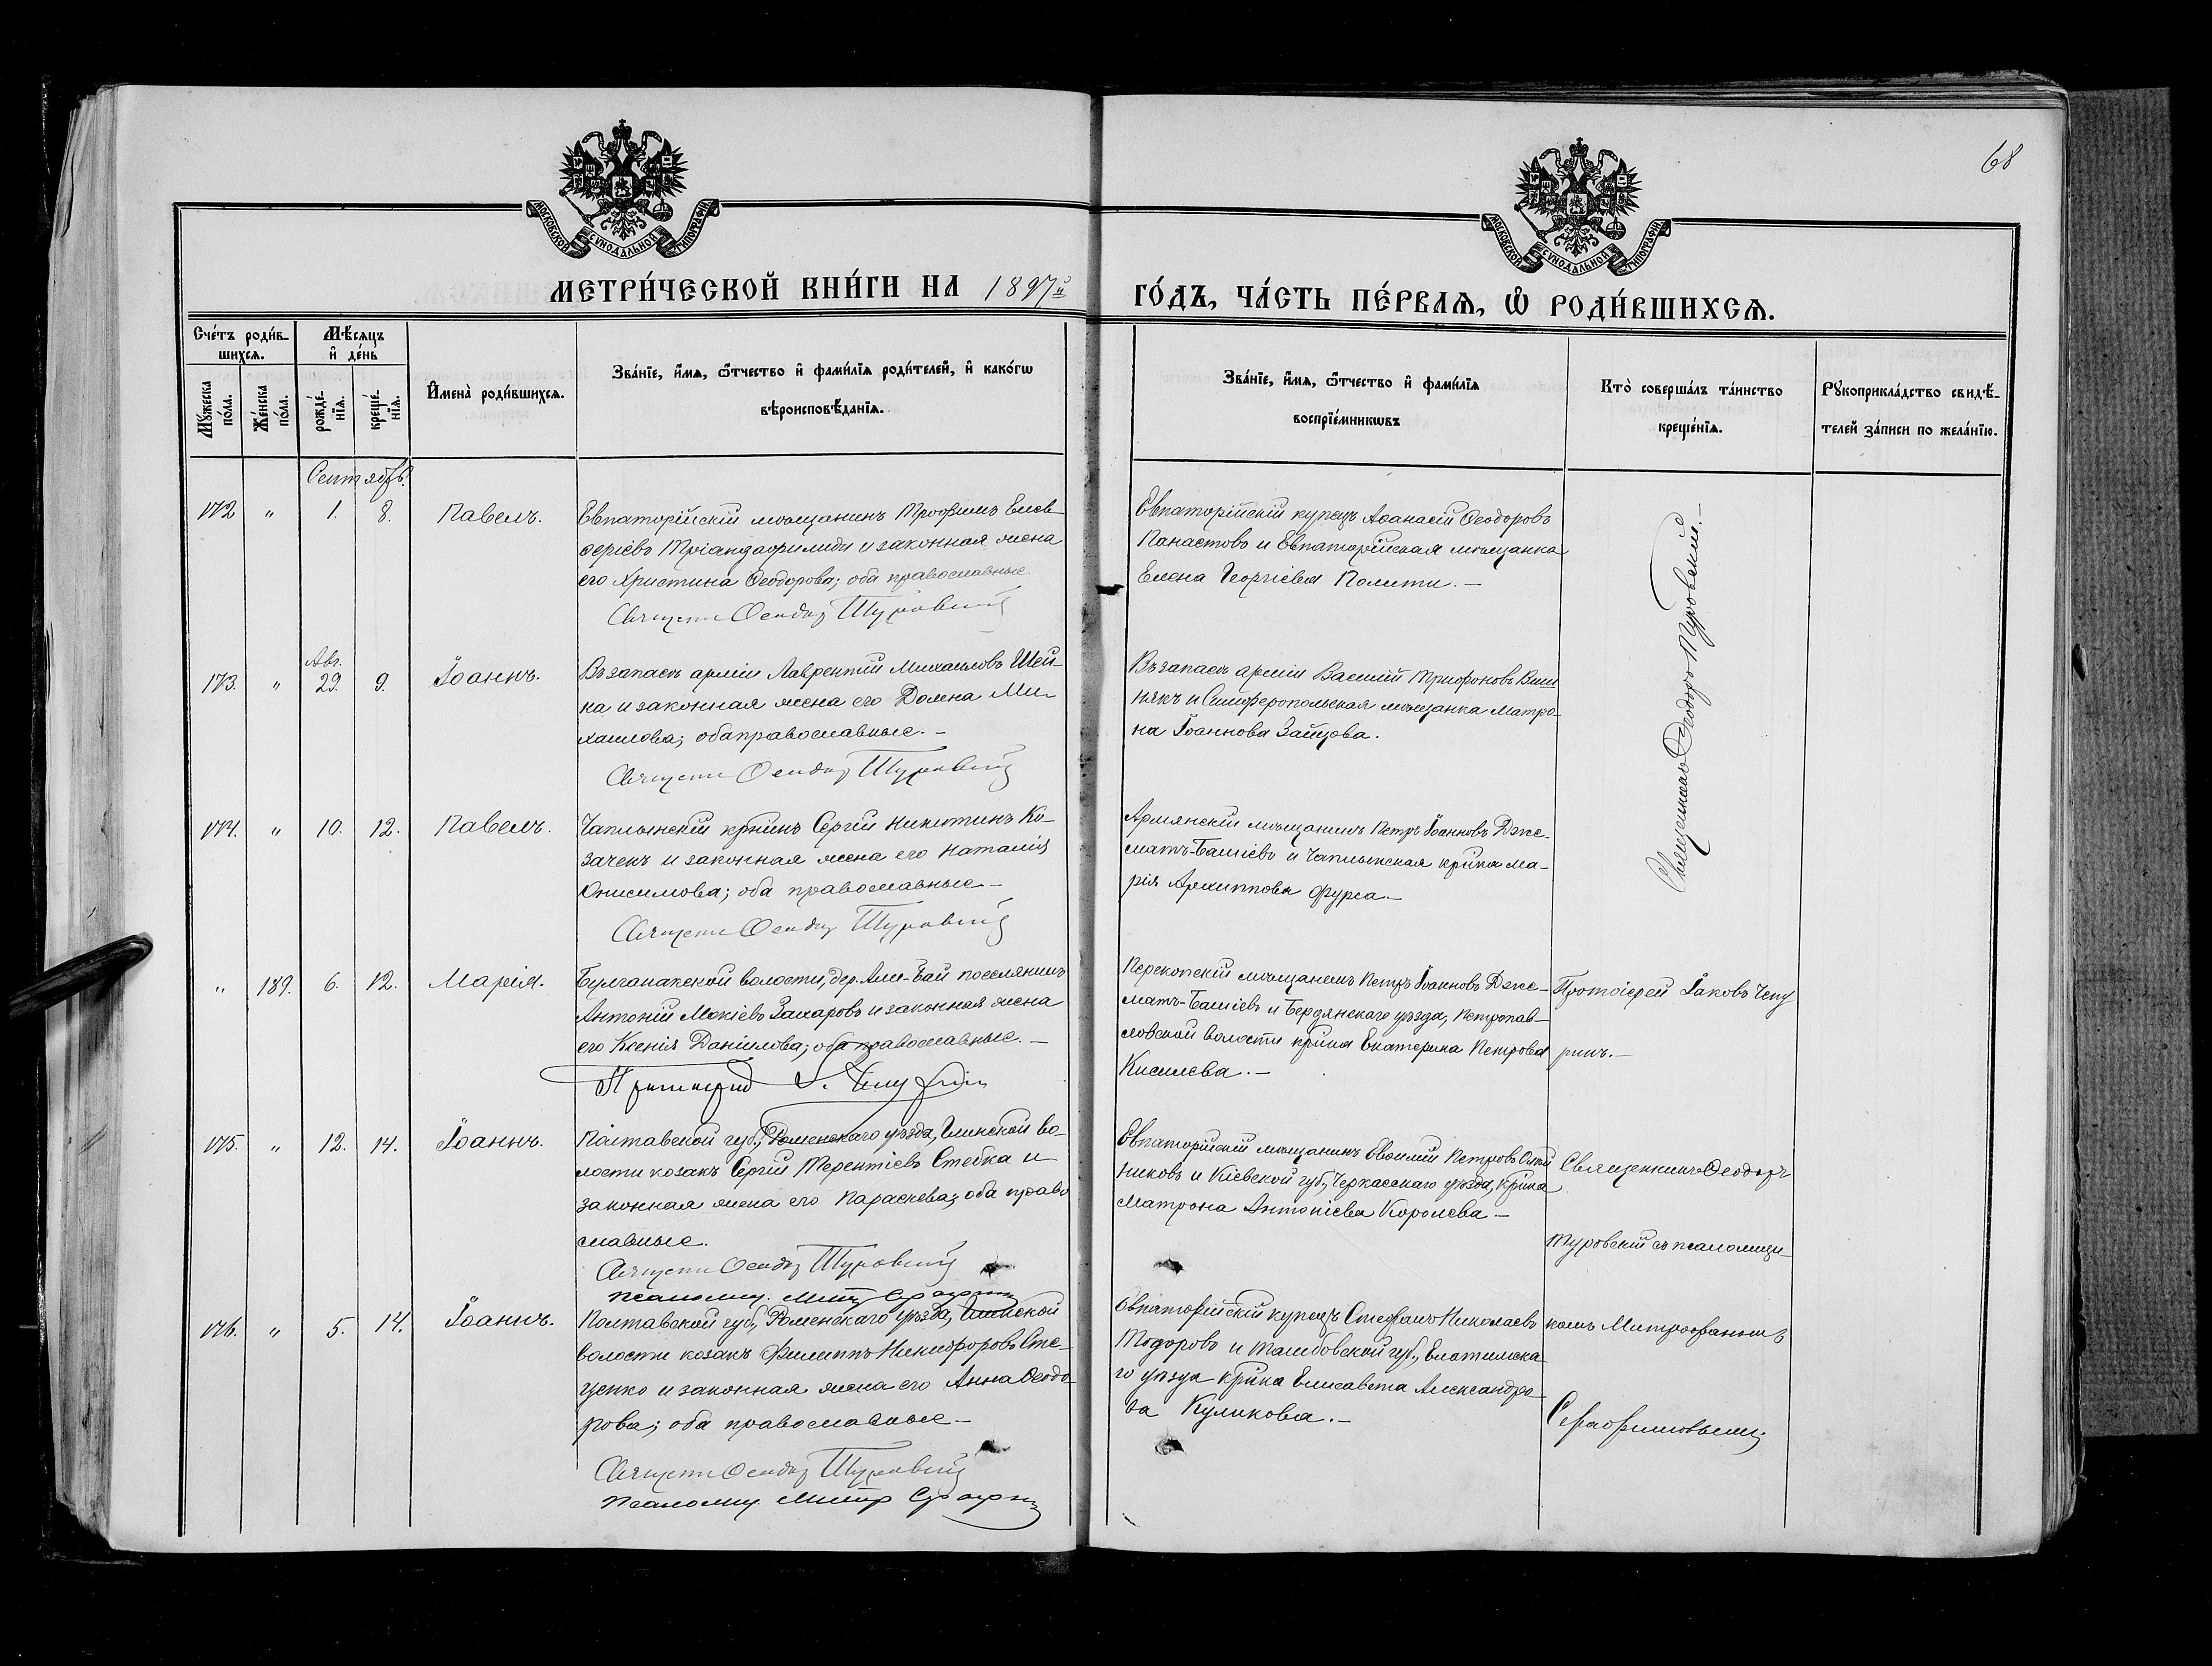 68
МОСКОВСКОЙ СѴНОДАЛЬНОЙ ТИПОГРАФІИ
МОСКОВСКОЙ СѴНОДАЛЬНОЙ ТИПОГРАФІИ
МЕТРИ́ЧЕСКОЙ КНИ́ГИ НА 1897й
ГО́ДЪ, ЧА́СТЬ ПЕ́РВАѦ, Ѽ РОДИ́ВШИХСѦ.
Сче́тъ роди́в-
шихсѧ.
Мꙋжеска по́ла.
Же́нска по́ла.
Мѣ́сѧцъ
и҆ де́нь
рожде́-
нїѧ.
креще́-
нїѧ.
И҆мена̀ роди́вшихсѧ.
Зва́нїе, и҆́мѧ, ѻ҆́тчество и҆ фами́лїѧ роди́телей, и҆ како́гѡ
вѣроисповѣ́данїѧ.
Зва́нїе, и҆́мѧ, ѻ҆́тчество и҆ фами́лїѧ
воспрїе́мникѡвъ
Кто̀ соверша́лъ та́инство
креще́нїѧ.
Рꙋкоприкла́дство свидѣ́-
телей за́писи по жела́нїю.
Сентябрь.
172 " 1. 8. Павелъ.
Евпаторійскій мѣщанинъ Трофимъ Елев-
ѳеріевъ Тріандафилиди и законная жена
его Христина Ѳеодорова; оба православные
Священн Ѳеодоръ Туровскій
Евпаторійскій купецъ Аѳанасій Ѳеодоровъ
Панастово и Евпаторійская мѣщанка
Елена Георгіева Полити. —
Священникъ Ѳеодоръ Туровскій. —
Авг.
173. " 29. 9. Іоаннъ.
Въ запасѣ арміи Лаврентій Михаиловъ Шей-
ка и законная жена его Домна Ми-
хаилова; оба православные. —
Священн Ѳеодоръ Туровскій
Въ запасѣ арміи Василій Трифоновъ Виш
някъ и Симферопольская мѣщанка Матро-
на Іоаннова Зайцова.
174. " 10. 12. Павелъ.
Чаплынскій кр-нинъ Сергій Никитинъ Ко-
заченъ и законная жена его Наталія
Онисимова; оба православные —
Священн Ѳеодоръ Туровскій
Армянскій мѣщанинъ Петръ Іоанновъ Дже-
матъ-Башіевъ и Чаплынская кр-нка Ма-
рія Архиппова Фурса. —
" 189. 6. 12. Марія.
Булганакской волости, дер. Аши-Бай поселянинъ
Антоній Мокіевъ Захаровъ и законная жена
его Ксенія Даніилова; оба православные. —
Протоіерей І. Чепуринъ
Перекопскій мѣщанинъ Петръ Іоанновъ Дже-
матъ-Башіевъ и Бердянскаго уѣзда, Петропав-
ловской волости кр-нка Екатерина Петрова
Кисилева. —
Протоіерей Іаковъ Чепу
ринъ. —
175. " 12. 14. Іоаннъ.
Полтавской губ., Роменскаго уѣзда, Глинской во-
лости козакъ Сергій Терентіевъ Стебка и
законная жена его Параскева; оба право
славные.
Священн Ѳеодоръ Туровскій
Псаломщ. Митр Серафим
Евпаторійскій мѣщанинъ Евѳимій Петровъ
никовъ и Кіевской губ., Черкасскаго уѣзда, кр-нка
Матрона Антоніева Королева —
Священникъ Ѳеодоръ
Туровскій съ псаломщи-
176. " 5. 14. Іоаннъ.
Полтавской губ., Роменскаго уѣзда, Глинской
волости козакъ Филиппъ Никифоровъ Сте-
ценко и законная жена его Анна Ѳеодо-
рова; оба православные —
Священн Ѳеодоръ Туровскій
Псаломщ. Митр Серафим
Евпаторійскій купецъ Стефанъ Николаевъ
Тодоровъ и Тамбовской губ., Елатимска-
го уѣзда кр-нка Елисавета Александро-
ва Куликова. —
комъ Митрофаномъ
Серафимовымъ